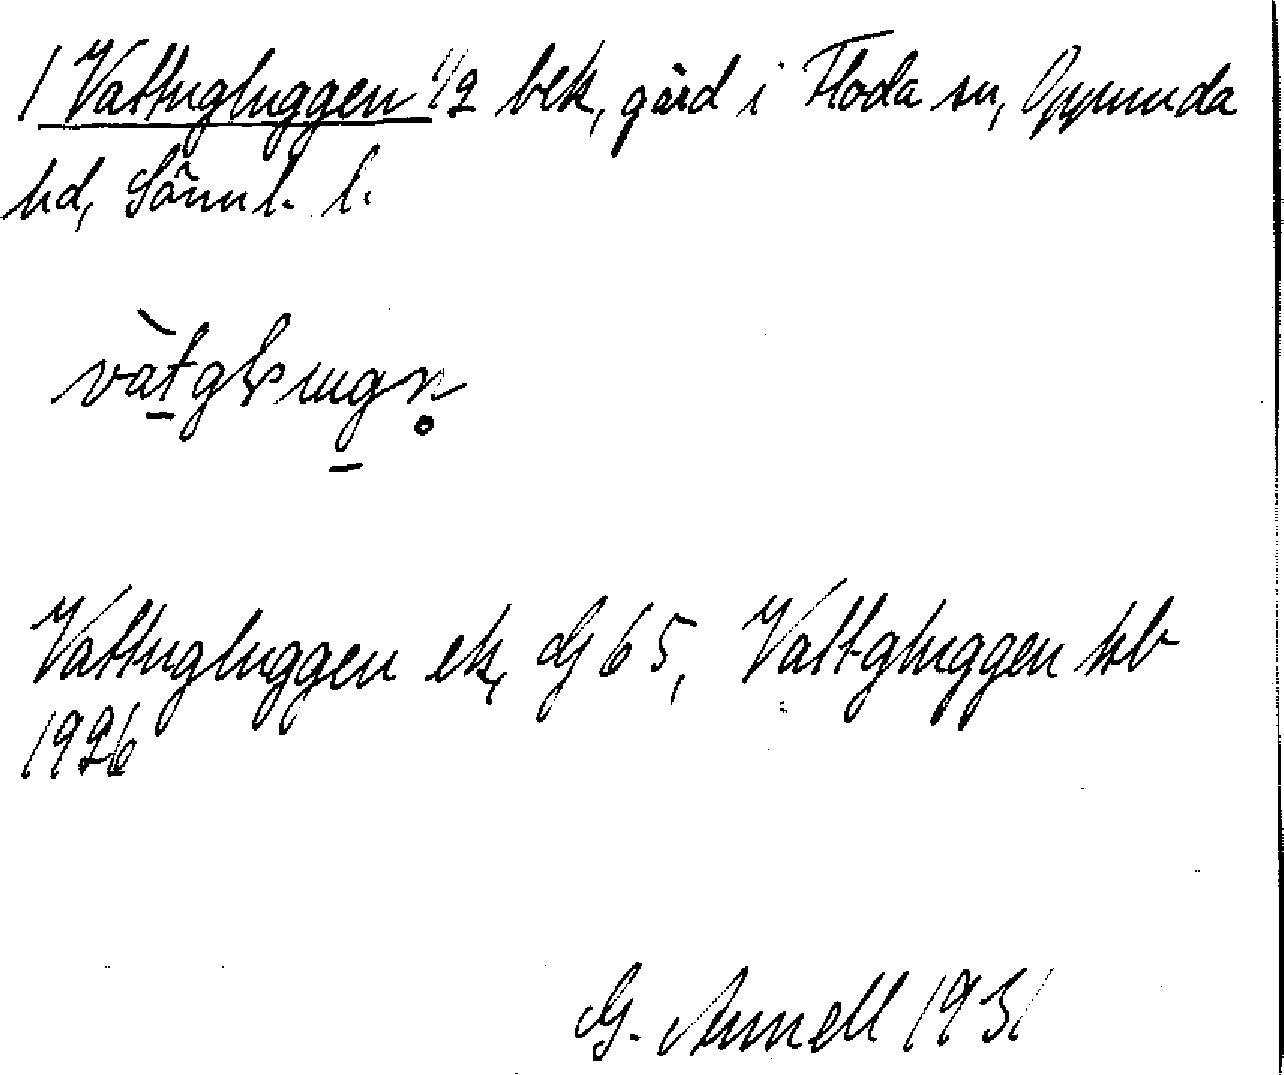 1 Vattugluggen 1/2 bek, gård i Floda sn, Oppunda
hd, Sörml. l.
Vattugluggen ek, G 65, Vattgluggen jrb
1926
G. Arnell 1931